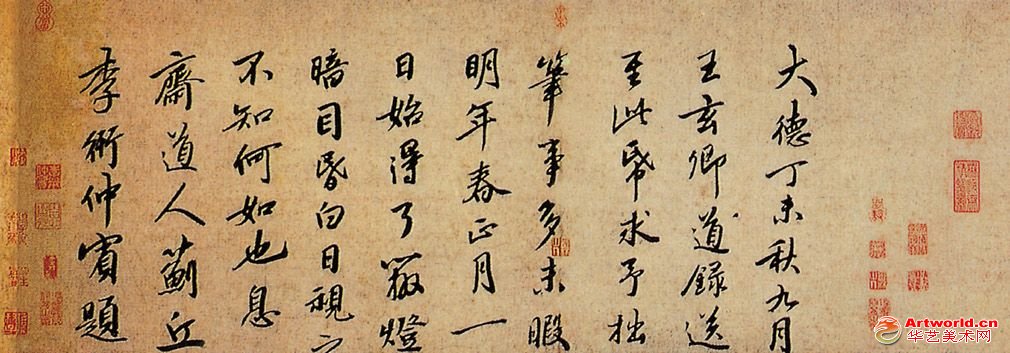 大德丁未秋九月
王玄卿道錄送
至此帋求予拙
筆事多未暇
明年春正月一
日始得了破燈
暗目昏白日視之
不知何如也息
齋道人薊丘
李衎仲賓題
Artworld.cn
华艺美术网